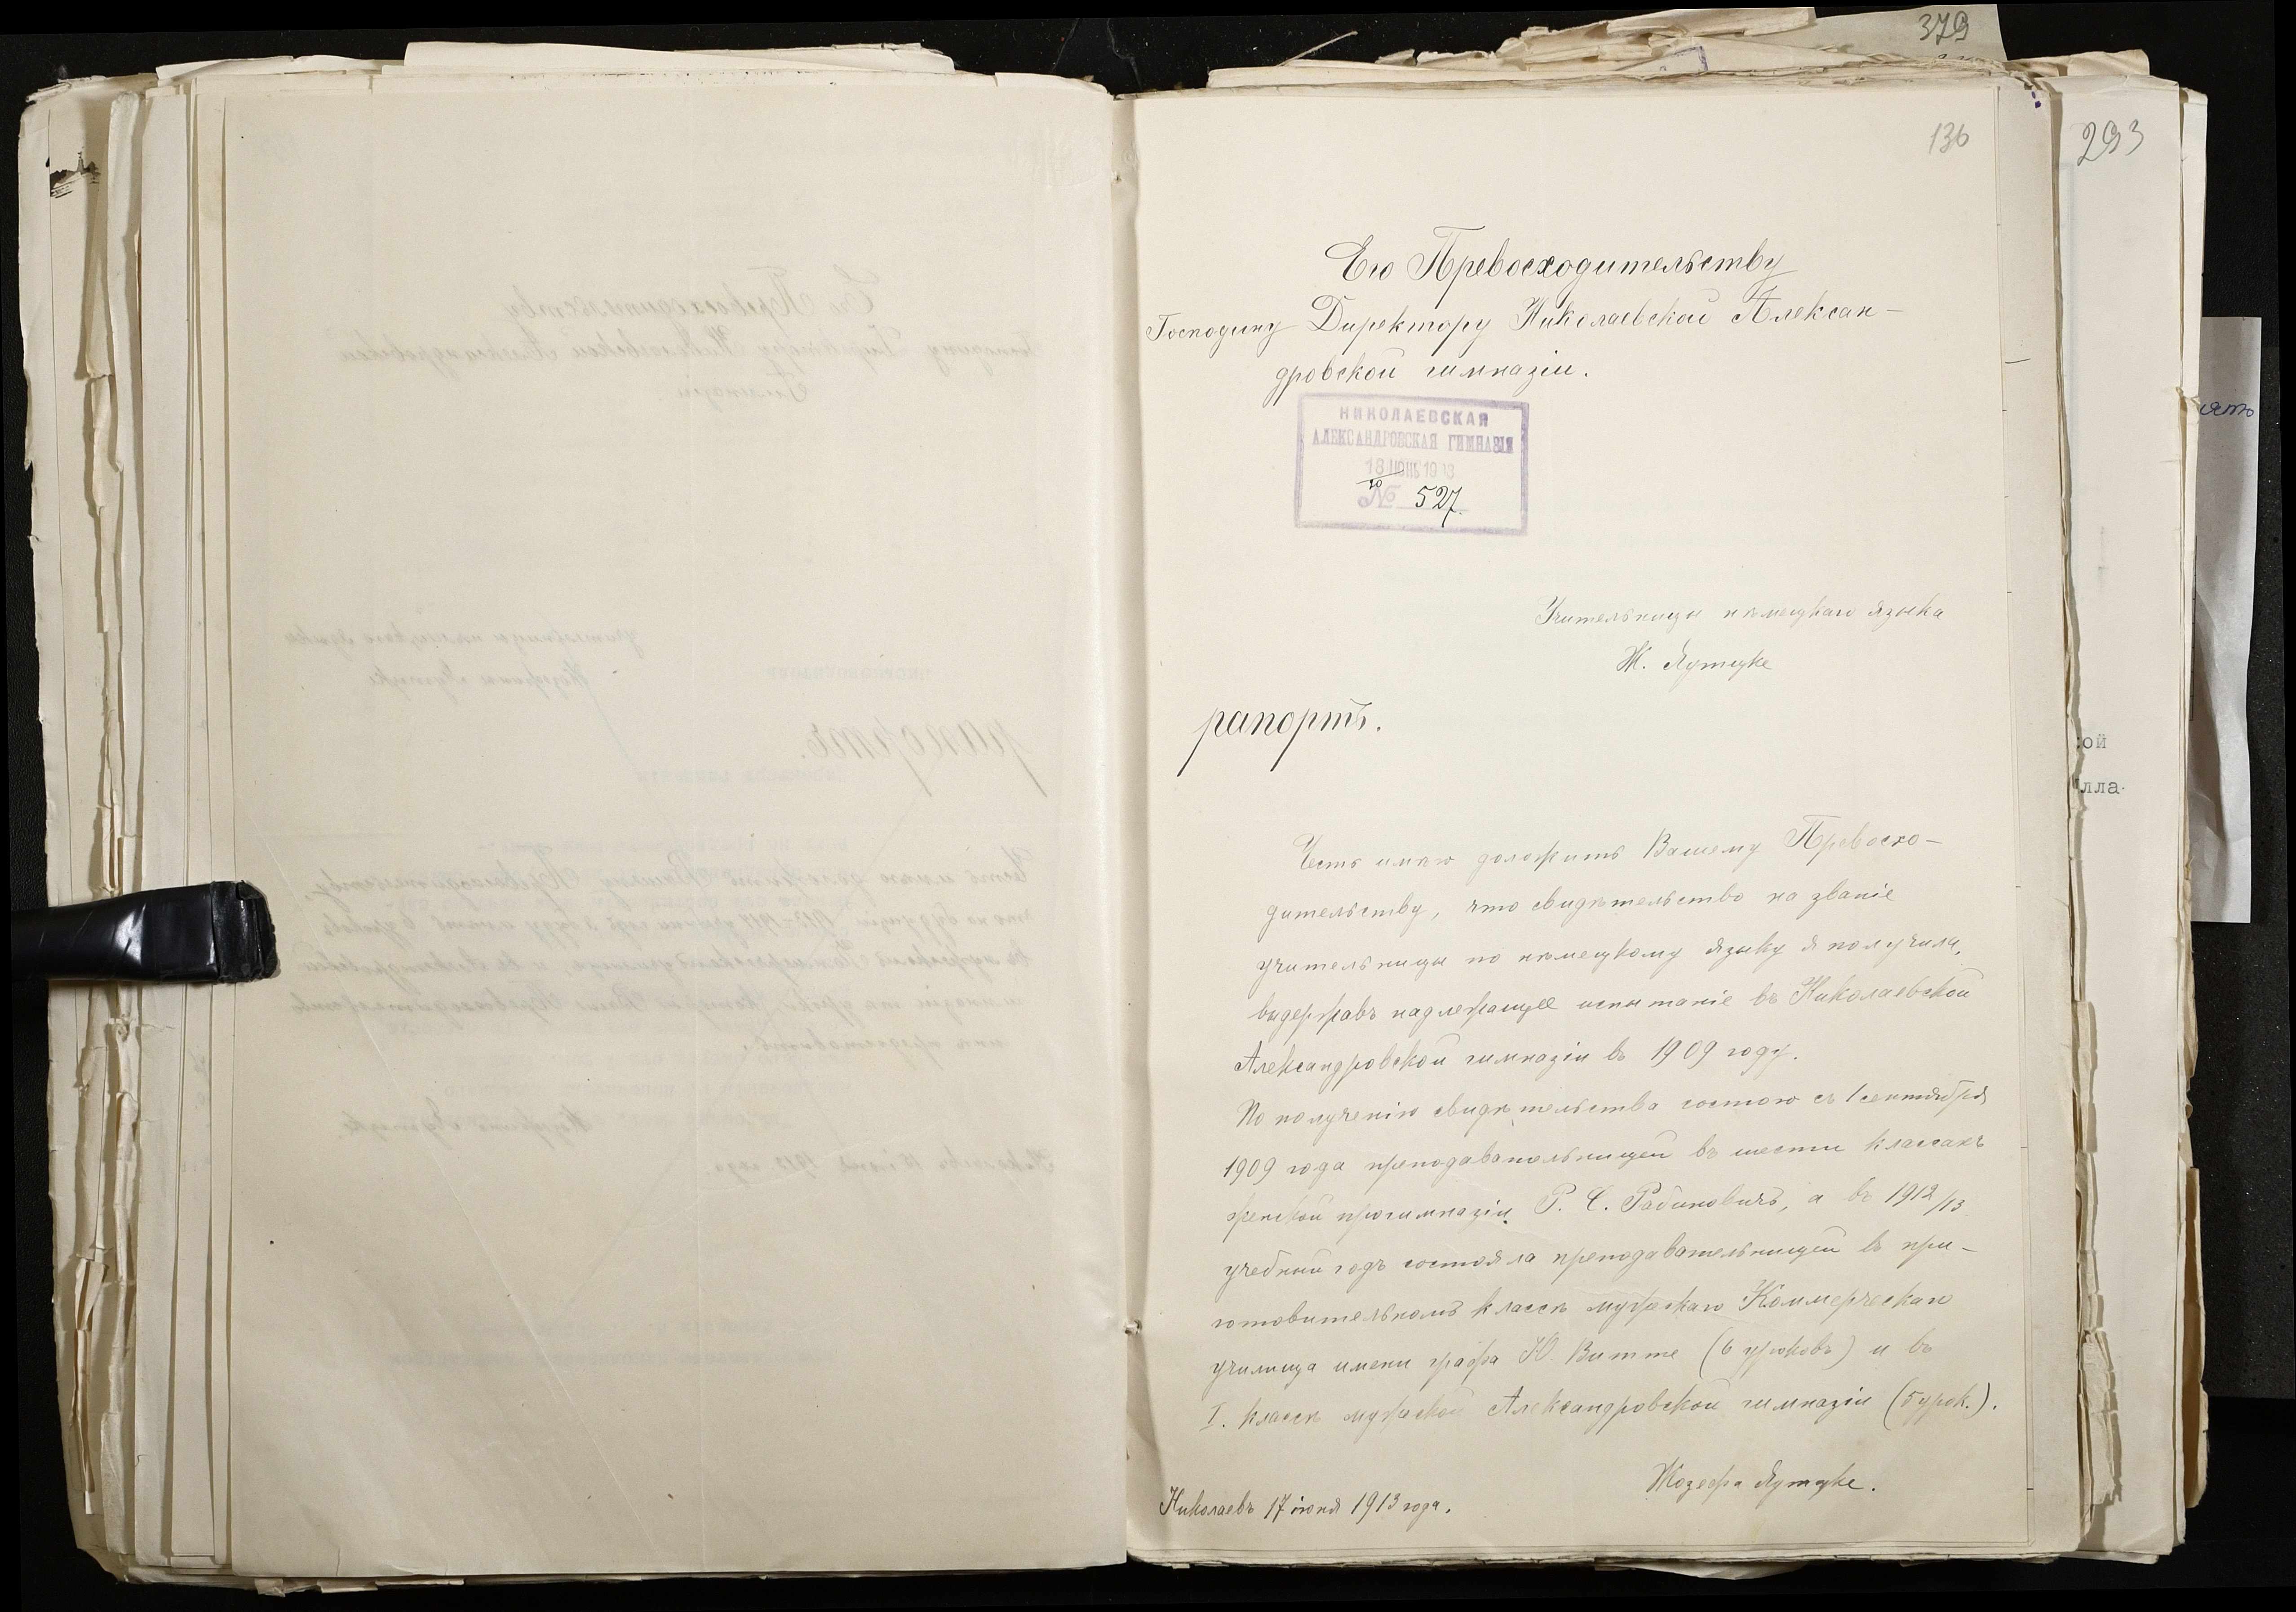 379
136
293
Его Превосходительству
Господину Директору Николаевской Алексан-
дровской гимназіи.
НИКОЛАЕВСКАЯ
АЛЕКСАНДРОВСКАЯ ГИМНАЗІЯ
18 ІЮН 1913
№ 527.
Учительницы нѣмецкаго языка
Ж. Яутцке
рапортъ.
Честь имѣю доложить Вашему Превосхо-
дительству, что свидѣтельство на званіе
учительницы по нѣмецкому языку я получила,
выдержавъ надлежащее испытаніе въ Николаевской
Александровской гимназіи въ 1909 году.
По полученію свидѣтельства состою съ 1 сентября
1909 года преподавательницей въ шести классахъ
женской прогимназіи Р. С. Рабиновичъ, а въ 1912/13
учебный годъ состояла преподавательницей въ при-
готовительномъ классѣ мужскаго Коммерческаго
училища имени графа Ю. Витте (6 уроковъ) и въ
I. классѣ мужской Александровской гимназіи (5 урок.).
Жозефа Яутцке.
Николаевъ 17 іюня 1913 года.
ой
лла-